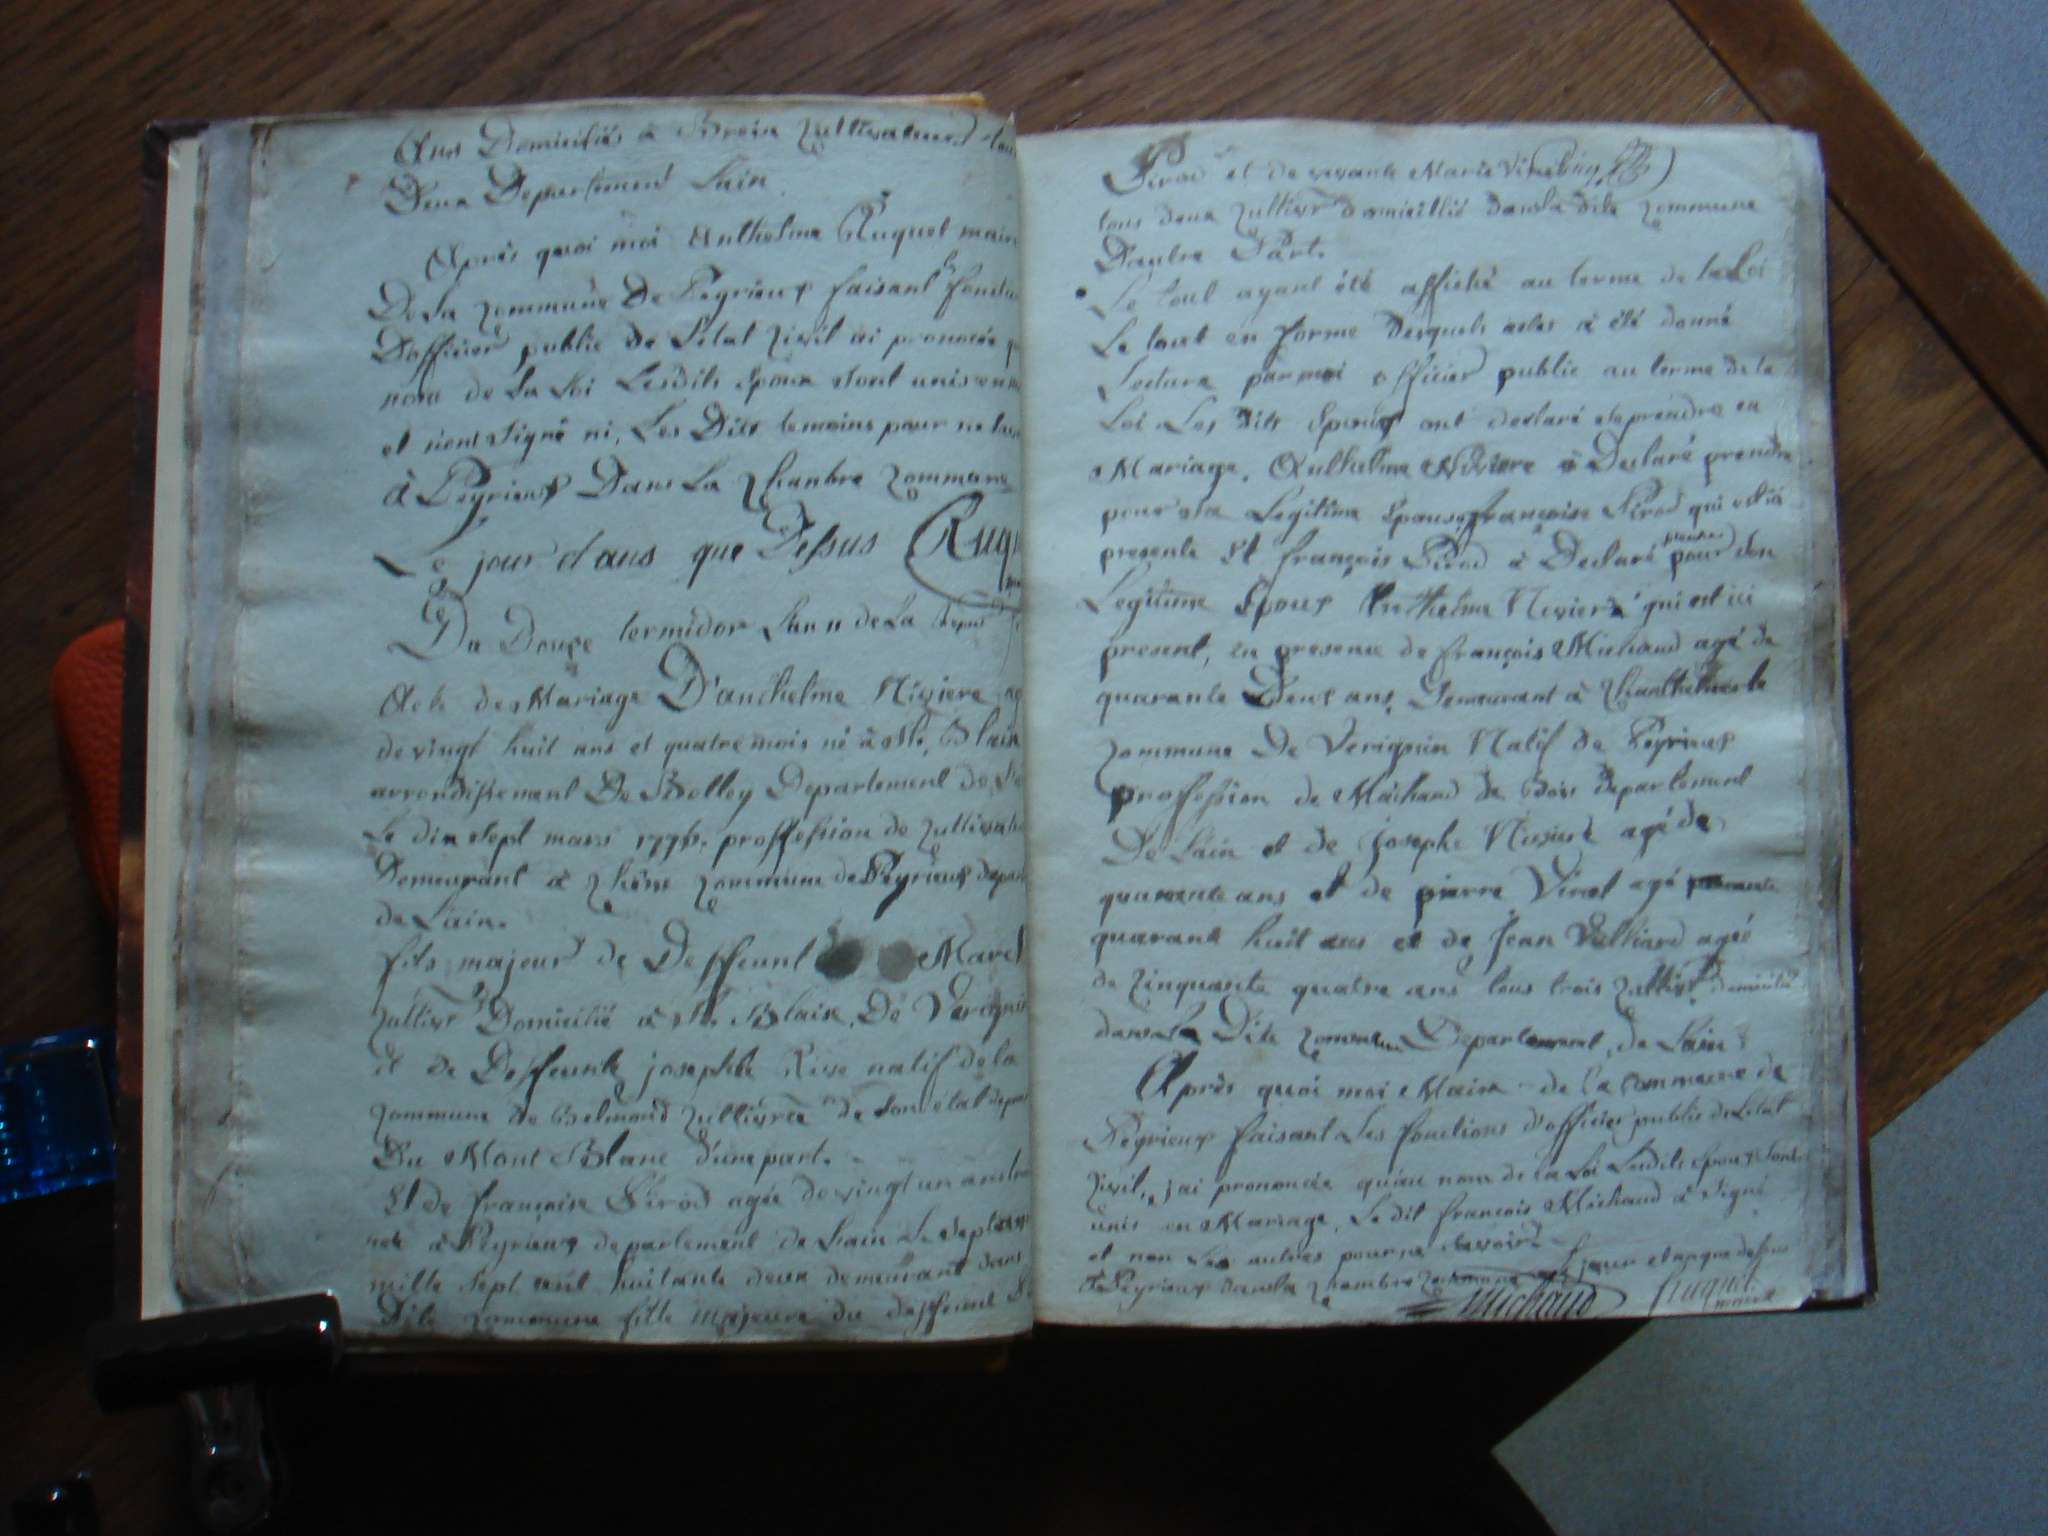 ans Domicilié à Brein Zultivateurs tous
Deux Departement Lain
Après quoi moi Anthelme Ruquet maire
De La Zommune De Peyrieux faisant les fonctions
D'officier public de Letat Zivil ai prononcée
nom de La Loi Lesdits Epoux sont unis en
et n'ont signé ni, Les Dits temoins pour ne
à Peyrieux Dans La Zhambre Zommune
Le jour et ans que Dessus Ruq
Du Douze termidor Lan 11 de La
Acte de Mariage D'anthelme Niviere
de vingt huit ans et quatre mois né à St. Blain
arrondissement De Belley Departement de
Le dix sept mars 1775, proffession de
Demeurant à Zhêne Zommune de Peyrieux
de Lain.
fils majeur de Deffeunt Marc
Zultivr Domicilié à St. Blain, De Verignin
et de Deffeunte josephte Rive natif de la
Zommune de Belmond Zultivrce de son etat
Du Mont Blanc d'une part.
Et de françoise Pirod agée de vingt un ans
née à Peyrieux departement de Lain Le
mille sept cent huitante deux demeurant dans
Dite Zommune fille majeure du deffeunt
Pirod et de vivante Marie
tous deux Zultivr domicillié dans la dite Zommune
D'autre Part.
Le tout ayant été affiché au terme de la Loi
Le tout en forme desquels actes à été donné
Lecture par moi officier public au terme de la
Loi Les dits Epoux ont declaré se prendre en
Mariage, Anthelme Niviere à Declaré prendre
pour sa Legitime Epouse françoise Pirod qui est ici
presente Et françoise Pirod à Declaré prendre pour son
Legitime Epoux Anthelme Niviere qui est ici
present, en presence de françois Michaud agé de
quarante Deux ans, Demeurant à
Zommune De Verignin Natif de Peyrieux
proffession de Machand de Bois departement
De Lain et de joseph Niviere agé de
quarente ans et de pierre Vinet agé
quarante huit ans et de Jean Vulliard agé
de Zinquante quatre ans tous trois Zultivr domicilié
dans La Dite Zommune Departement, de Lain
Après quoi moi Maire de la Commune de
Peyrieux faisant Les fonctions d'officier public de Letat
Zivil, j'ai prononcée qu'au nom de la Loi Lesdits Epoux sont
unis en Mariage, Le dit françois Michaud à signé
et non Les autres pour ne savoir
à Peyrieux dans la Zhambre Zommune jour et an que dessus
Michaud Ruquet
maire